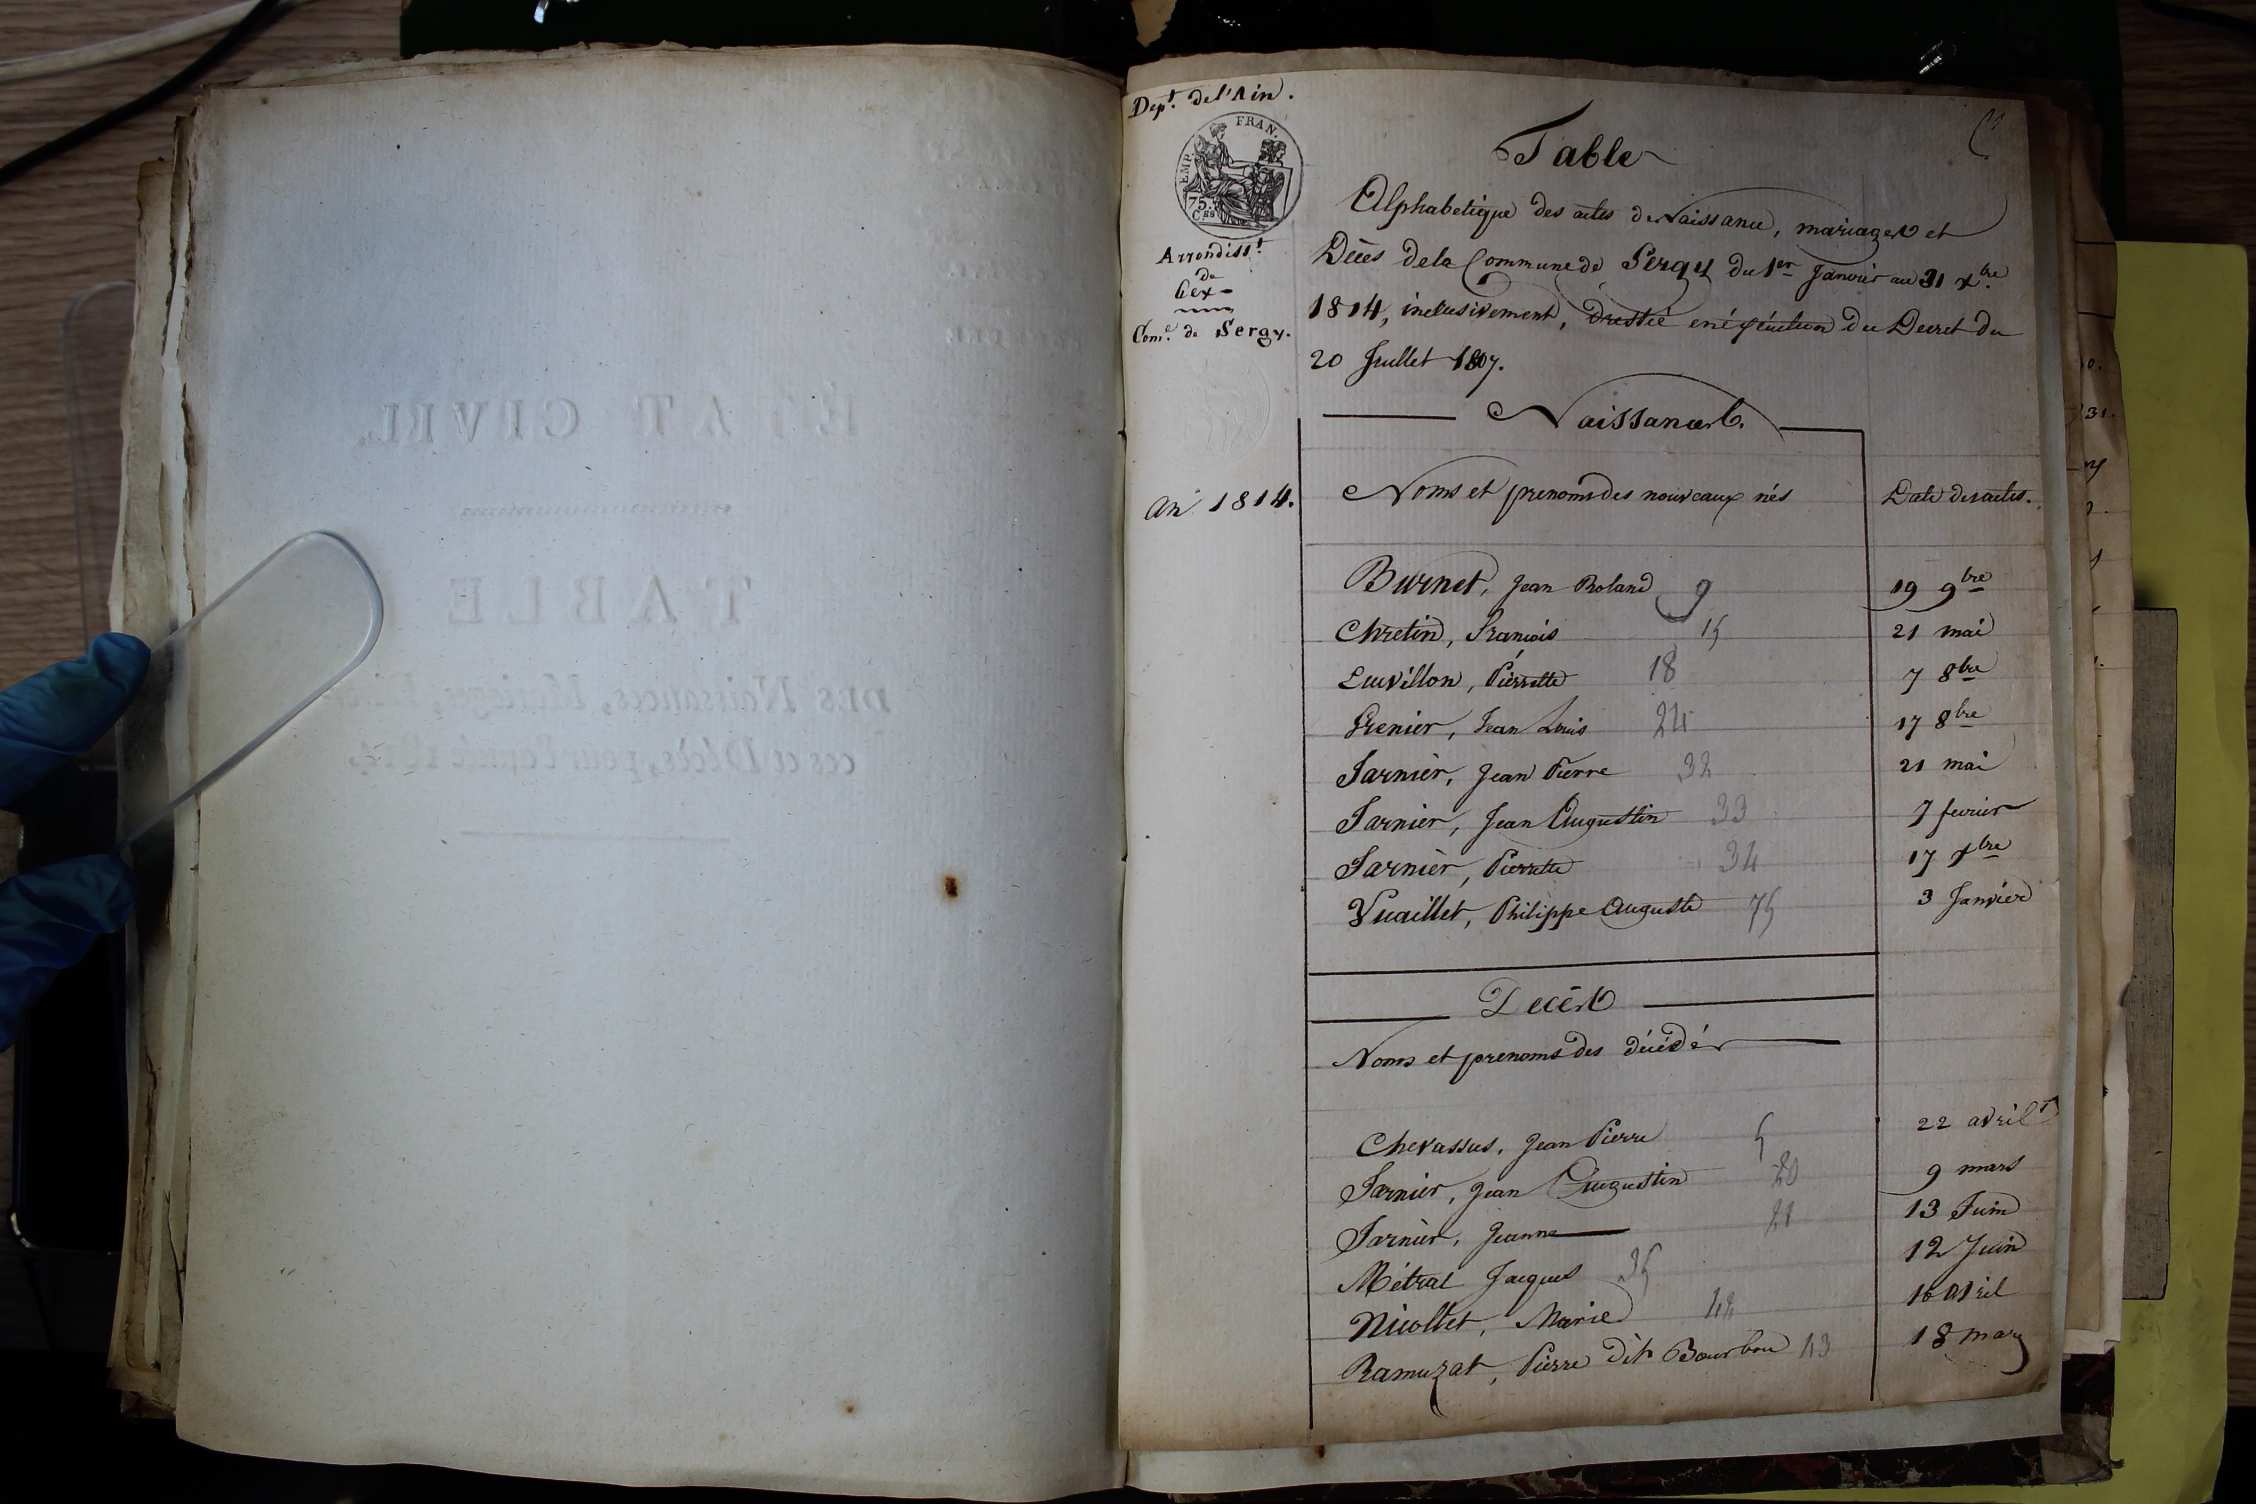 ÉTAT CIVIL,
TABLE
DES Naissances, Mariages,
ces et Décès, pour l'année 1814.
Dept. de l'Ain.
EMP. FRAN.
75.
C.ES
Arrondisst.
de
Gex
Come. de Sergy.
An 1814.
Table
Alphabetique des actes de Naissance, mariages et
Décès de la Commune de Sergy du 1er Janvier au 31 xbre
1814, inclusivement, dressée en éxécution du Decret du
20 Juillet 1807.
Naissances.
Noms et prenoms des nouveaux nés Date des actes.
Burnet, Jean Roland 9 19 9bre
Chretin, François 15 21 mai
Pierrette 18 7 8bre
Grenier, Jean Louis 24 17 8bre
Jarnier, Jean Pierre 32 21 mai
Jarnier, Jean Augustin 33 7 fevrier
Jarnier, Pierrette 34 17 xbre
Vuaillet, Philippe Auguste 75 3 Janvier
Décès
Noms et prenoms des décédés
Chevassus, Jean Pierre 5 22 avril
Jarnier, Jean Augustin 20 9 mars
Jarnier, Jeanne 21 13 Juin
Métral Jacques 35 12 Juin
Nicollet, Marie 42 16 avril
Ramuzat, Pierre dit Bourbon 43 18 mars